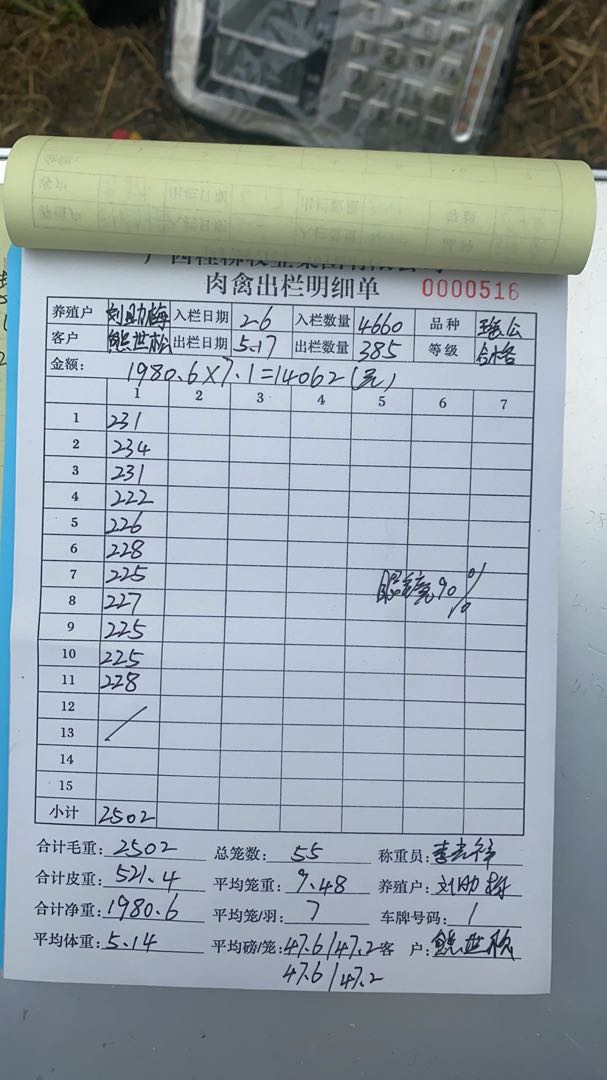 肉禽出栏明细单 0000516
养殖户 刘助梅 入栏日期 2.6 入栏数量 4660 品种 瑶公
客户 熊世松 出栏日期 5.17 出栏数量 385 等级 合格
金额: 1980.6×7.1=14062(元)
1 2 3 4 5 6 7
1 231
2 234
3 231
4 222
5 226
6 228
7 225
8 227
9 225
10 225
11 228
12
13
14
15
90%
小计 2502
合计毛重: 2502 总笼数: 55 称重员:
合计皮重: 521.4 平均笼重: 9.48 养殖户: 刘助梅
合计净重: 1980.6 平均笼/羽: 7 车牌号码: /
平均体重: 5.14 平均磅/笼: 47.6/47.2 客 户: 熊世松
47.6/47.2